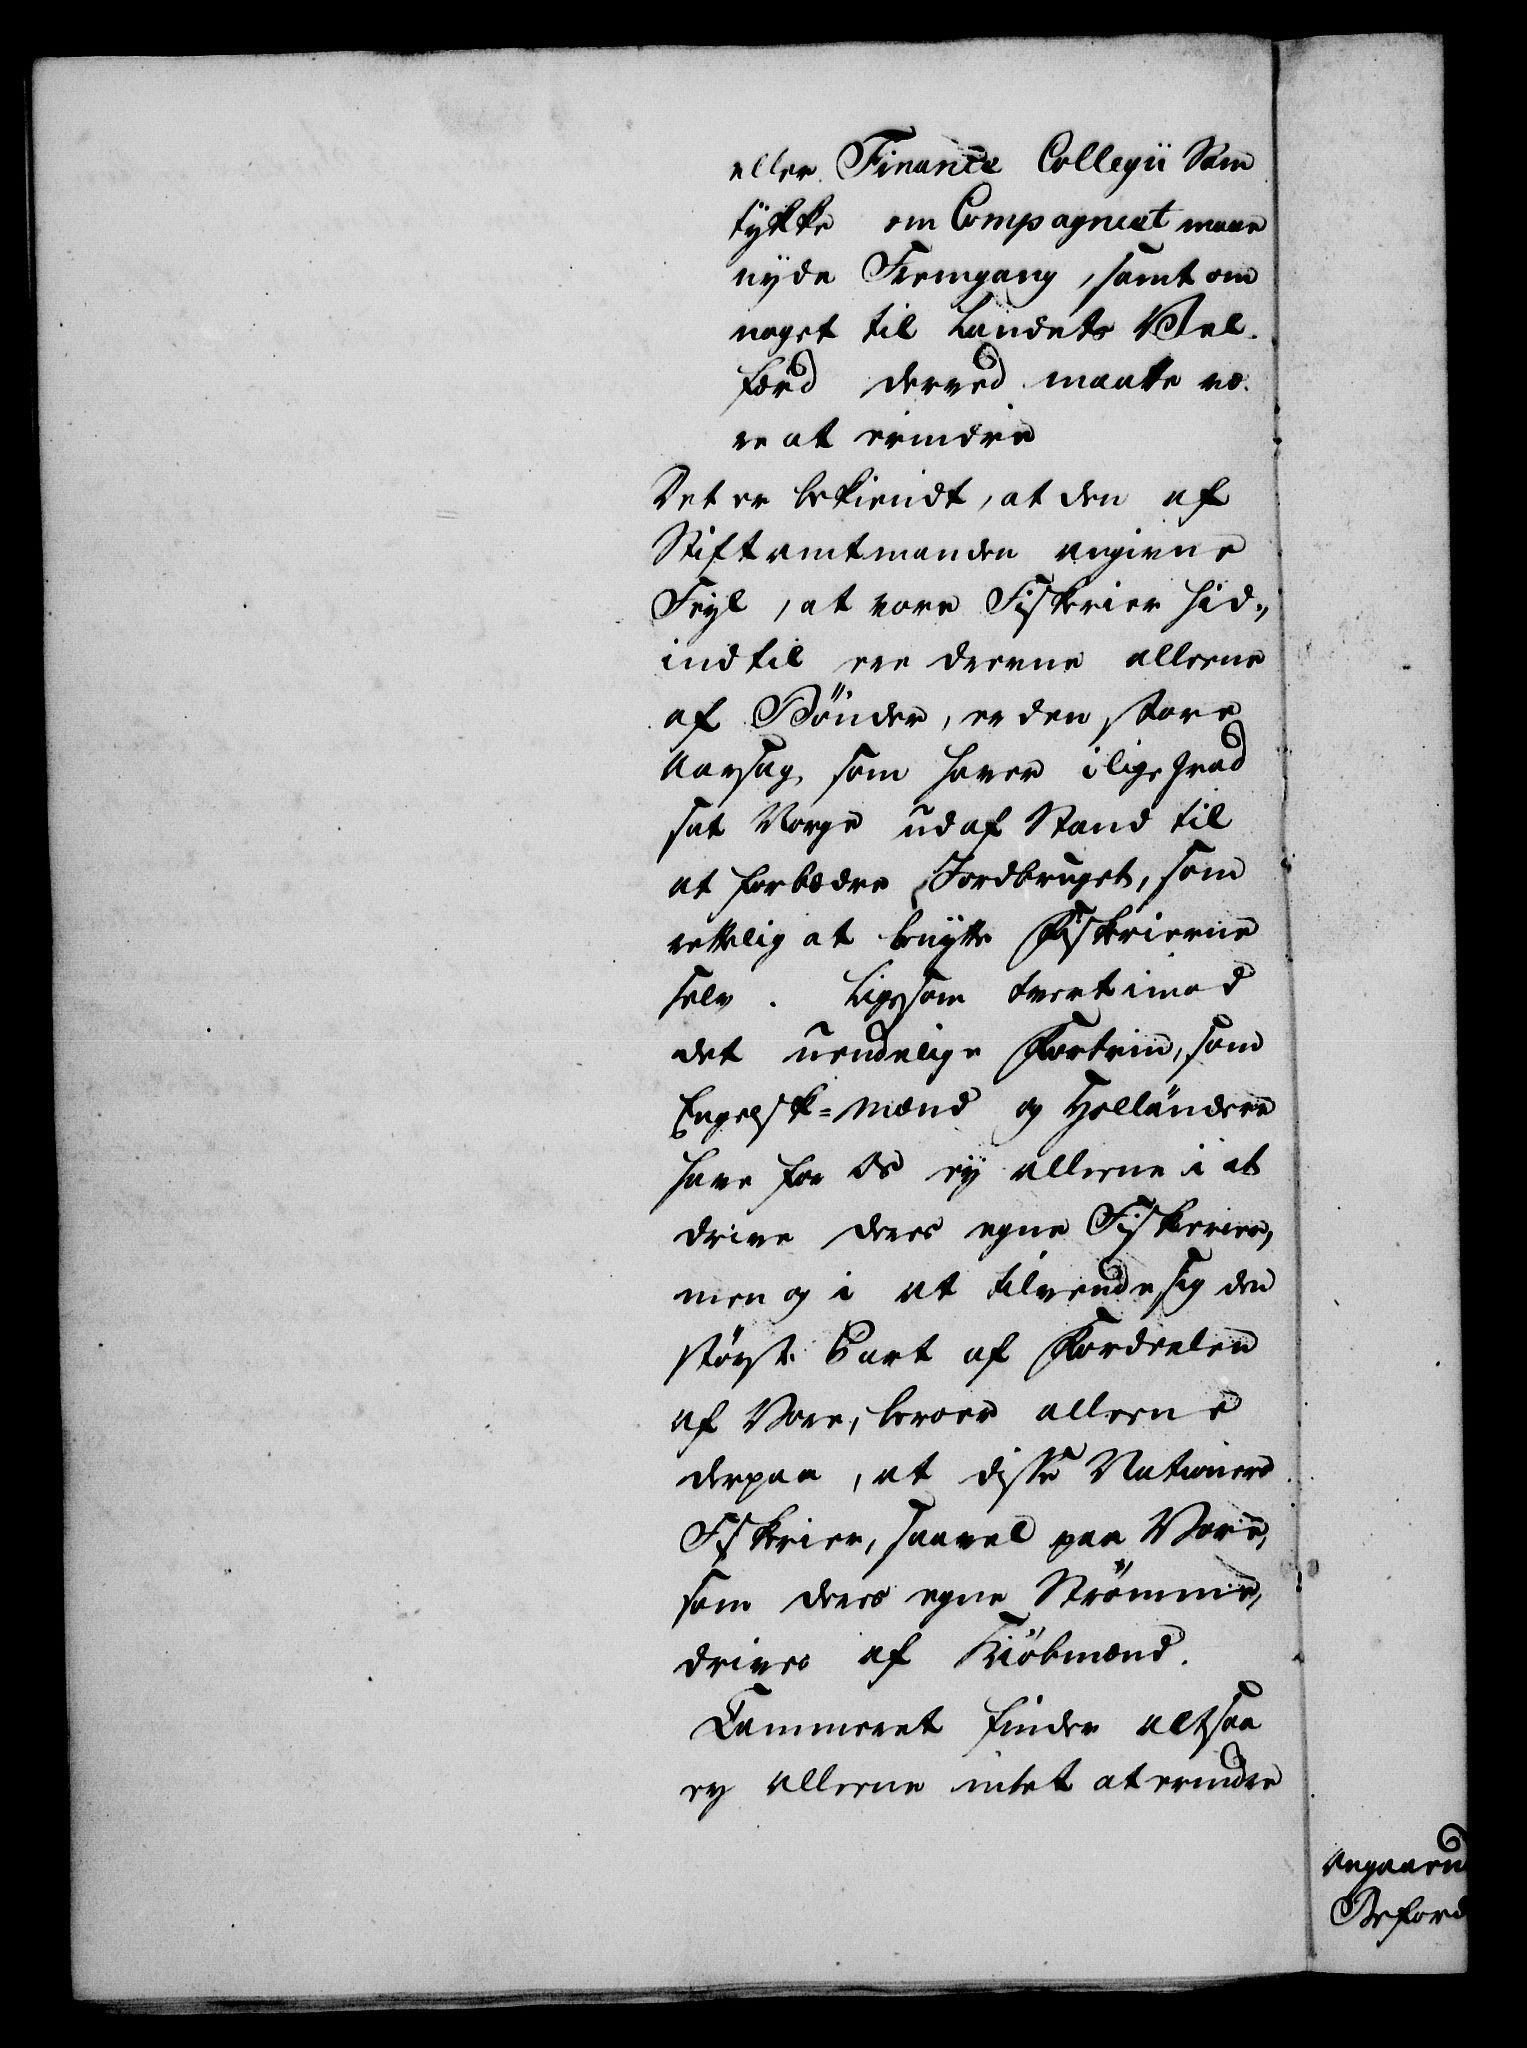 eller Finance Collegii Sam
tykke om Compagniet maae
nyde Fremgang, samt om
noget til Landets Vel-
færd derved maatte væ-
re at erindre
Det er bekiendt, at den af
Stiftamtmanden angivne
Feyl, at vore Fiskerier hid-
indtil ere drevne alleene
af Bönder, er den store
Aarsag, som haver i lige Grad
sat Norge ud af Stand til
at forbedre Jordbruget, som
rettelig at benytte Fiskerierne
selv. Ligesom tvertimod
det uendelige Fortrin, som
Engelsk=Mænd og Holländere
have for Os ey alleene i at
drive deres egne Fiskerier,
men og i at tilvende sig den
störste Part af Fordeelen
af Vore, beroer alleene
derpaa, at disse Nationers
Fiskerier, saavel paa Vore,
som deres egne Strömme,
drives af Kiöbmænd.
Cammeret finder altsaa
ey alleene intet at erindre
Angaaend
Beford